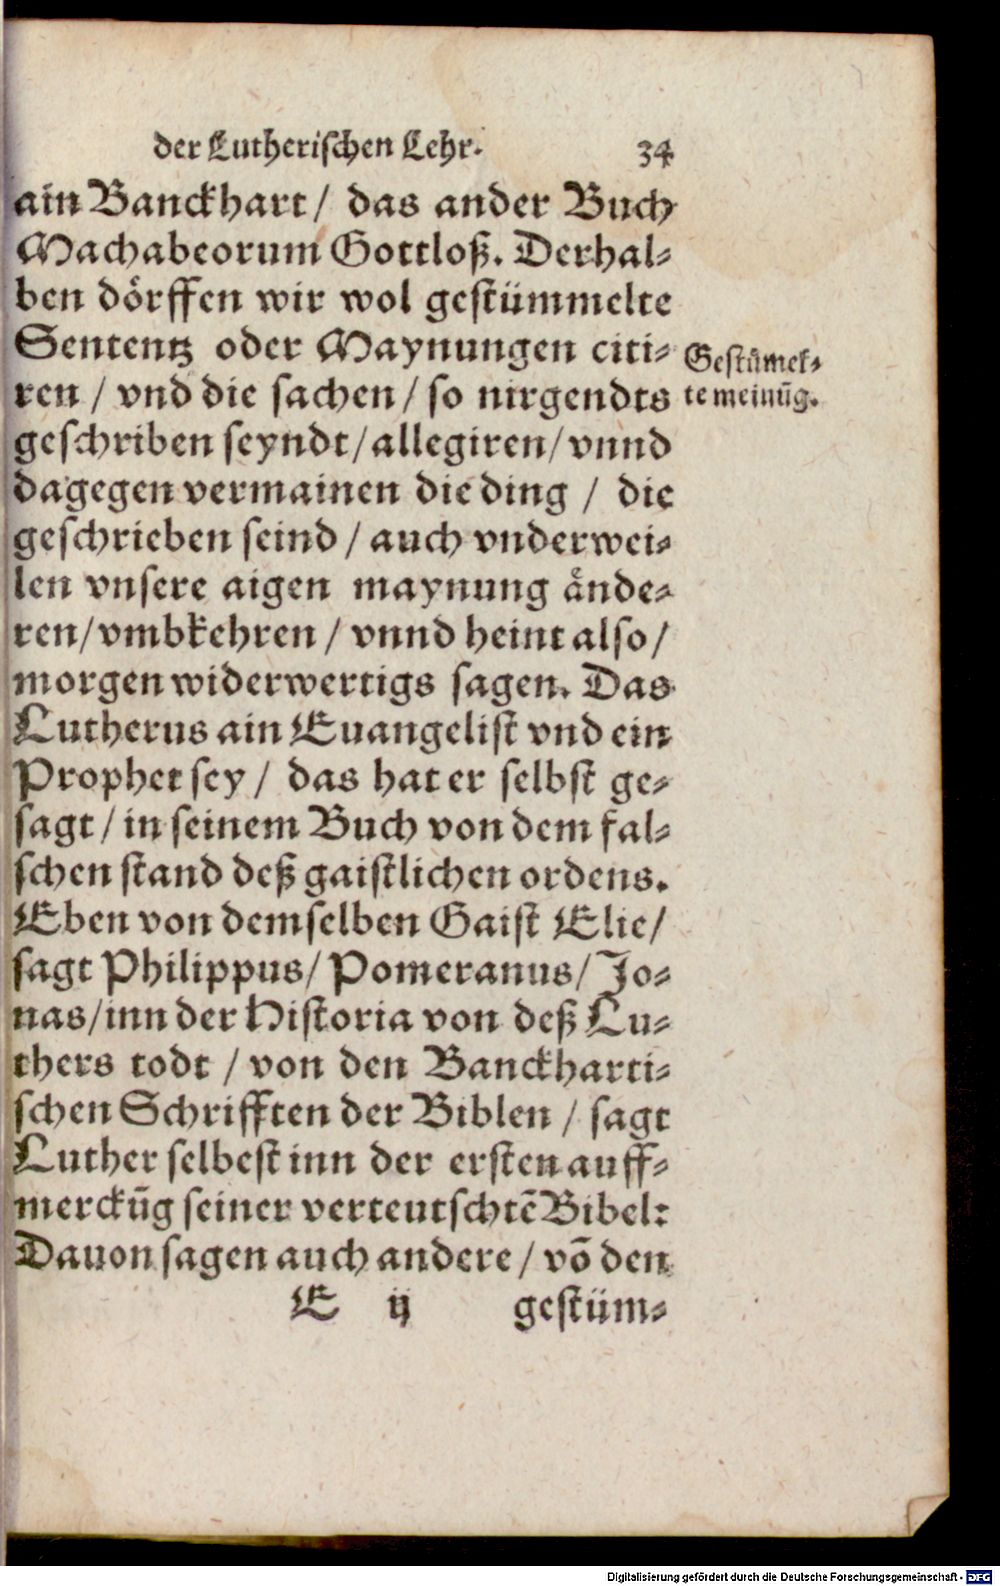 der Lutherischen Lehr. 34
ain Banckhart / das ander Buch
Machabeorum Gottloß. Derhal⸗
ben dörffen wir wol gestümmelte
Sententz oder Maynungen citi⸗
ren / vnd die sachen / so nirgendts
geschriben seyndt / allegiren / vnnd
dagegen vermainen die ding / die
geschrieben seind / auch vnderwei⸗
len vnsere aigen maynung ände⸗
ren / vmbkehren / vnnd heint also /
morgen widerwertigs sagen. Das
Lutherus ain Euangelist vnd ein
Prophet sey / das hat er selbst ge⸗
sagt / in seinem Buch von dem fal⸗
schen stand deß gaistlichen ordens.
Eben von demselben Gaist Elie /
sagt Philippus / Pomeranus / Jo⸗
nas / inn der Historia von deß Lu⸗
thers todt / von den Banckharti⸗
schen Schrifften der Biblen / sagt
Luther selbest inn der ersten auff⸗
merckūg seiner verteutschtē Bibel:
Dauon sagen auch andere / vō den
E ij gestüm⸗
Gestümel⸗
te meinūg.
Digitalisierung gefördert durch die Deutsche Forschungsgemeinschaft - DFG